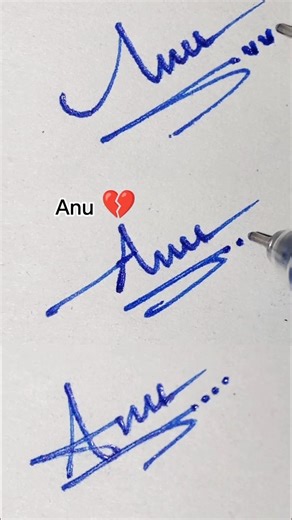 Anu
Anu 💔
Anu
Anu